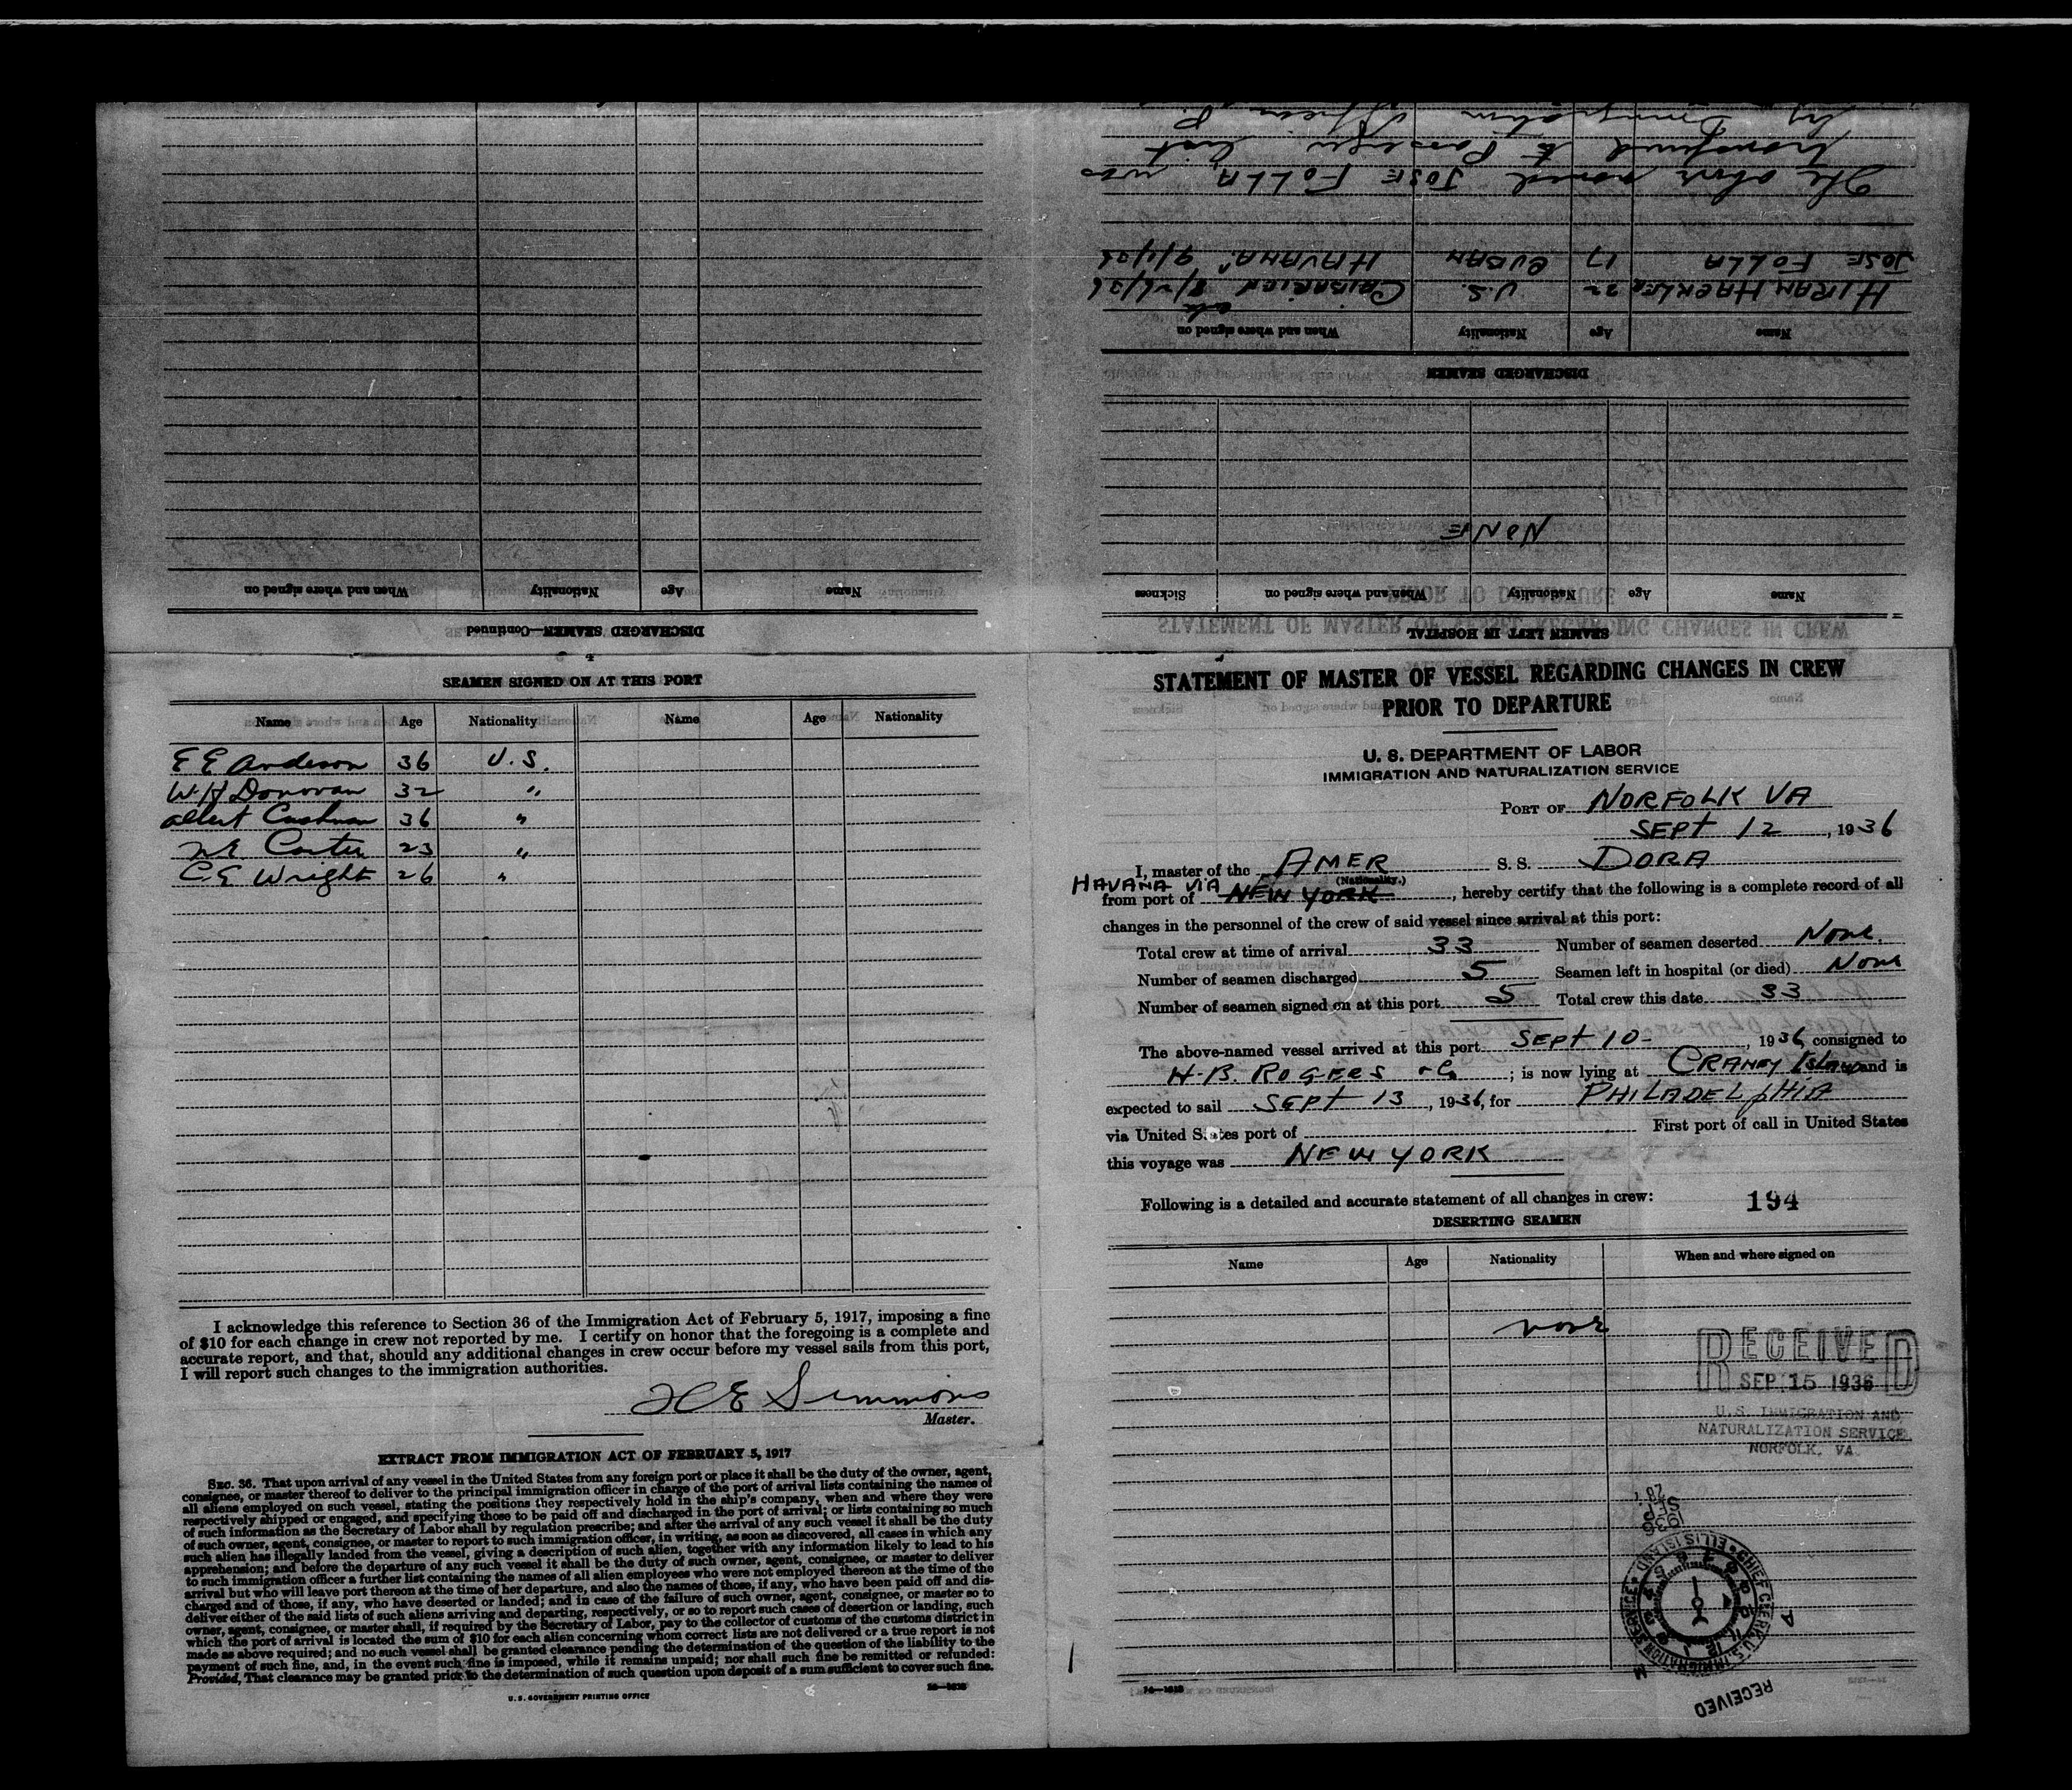 STATEMENT OF MASTER OF VESSEL REGARDING CHANGES IN CREW
PRIOR TO DEPARTURE
U. S. DEPARTMENT OF LABOR
IMMIGRATION AND NATURALIZATION SERVICE
PORT OF NORFOLK VA
SEPT 12, 1936
I, master of the AMER S. S. DORA
(Nationality.)
HAVANA VIA
from port of NEW YORK, hereby certify that the following is a complete record of all
changes in the personnel of the crew of said vessel since arrival at this port:
Total crew at time of arrival 33 Number of seamen deserted None.
Number of seamen discharged 5 Seamen left in hospital (or died) None
Number of seamen signed on at this port 5 Total crew this date 33
The above-named vessel arrived at this port SEPT 10-, 1936, consigned to
H.B. ROGERS & Co; is now lying at CRANEY Island and is
expected to sail SEPT 13, 1936, for PHILADELPHIA
via United States port of First port of call in United States
this voyage was NEW YORK
Following is a detailed and accurate statement of all changes in crew: 194
DESERTING SEAMEN
Name Age Nationality When and where signed on
none
RECEIVED
SEP 15 1936
U.S. IMMIGRATION AND
NATURALIZATION SERVICE
NORFOLK, VA.
1936
SEP
28
CHIEF CLERK U.S. IMMIGRATION SERVICE ELLIS ISLAND
A
M
RECEIVED
14—1918
SEAMEN LEFT IN HOSPITAL
Name Age Nationality When and where signed on Sickness
NONE
DISCHARGED SEAMEN
Name Age Nationality When and where signed on
HIRAM HAERLER 22 U.S. 8/26/36
JOSE FOLLA 17 CUBAN HAVANA 9/1/36
The above named JOSE FOLLA was
transferred to Passenger List
by Immigration
DISCHARGED SEAMEN—Continued
Name Age Nationality When and where signed on
SEAMEN SIGNED ON AT THIS PORT
Name Age Nationality Name Age Nationality
E E Anderson 36 U.S.
W H Donovan 32 "
Albert Cushman 36 "
Carter 23 "
C E Wright 26 "
I acknowledge this reference to Section 36 of the Immigration Act of February 5, 1917, imposing a fine
of $10 for each change in crew not reported by me. I certify on honor that the foregoing is a complete and
accurate report, and that, should any additional changes in crew occur before my vessel sails from this port,
I will report such changes to the immigration authorities.
E Simmons
Master.
EXTRACT FROM IMMIGRATION ACT OF FEBRUARY 5, 1917
SEC. 36. That upon arrival of any vessel in the United States from any foreign port or place it shall be the duty of the owner, agent,
consignee, or master thereof to deliver to the principal immigration officer in charge of the port of arrival lists containing the names of
all aliens employed on such vessel, stating the positions they respectively hold in the ship's company, when and where they were
respectively shipped or engaged, and specifying those to be paid off and discharged in the port of arrival; or lists containing so much
of such information as the Secretary of Labor shall by regulation prescribe; and after the arrival of any such vessel it shall be the duty
of such owner, agent, consignee, or master to report to such immigration officer, in writing, as soon as discovered, all cases in which any
such alien has illegally landed from the vessel, giving a description of such alien, together with any information likely to lead to his
apprehension; and before the departure of any such vessel it shall be the duty of such owner, agent, consignee, or master to deliver
to such immigration officer a further list containing the names of all alien employees who were not employed thereon at the time of the
arrival but who will leave port thereon at the time of her departure, and also the names of those, if any, who have been paid off and dis-
charged and of those, if any, who have deserted or landed; and in case of the failure of such owner, agent, consignee, or master so to
deliver either of the said lists of such aliens arriving and departing, respectively, or so to report such cases of desertion or landing, such
owner, agent, consignee, or master shall, if required by the Secretary of Labor, pay to the collector of customs of the customs district in
which the port of arrival is located the sum of $10 for each alien concerning whom correct lists are not delivered or a true report is not
made as above required; and no such vessel shall be granted clearance pending the determination of the question of the liability to the
payment of such fine, and, in the event such fine is imposed, while it remains unpaid; nor shall such fine be remitted or refunded:
Provided, That clearance may be granted prior to the determination of such question upon deposit of a sum sufficient to cover such fine.
U. S. GOVERNMENT PRINTING OFFICE